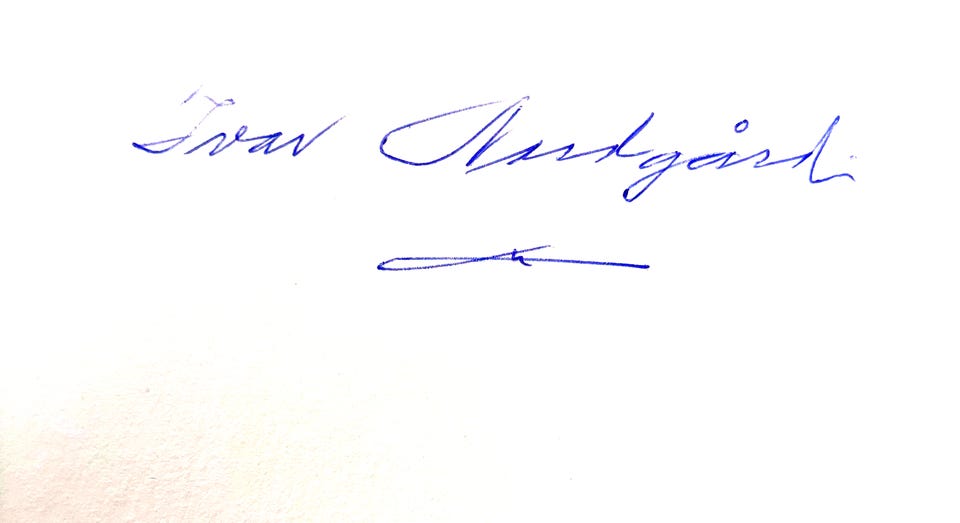 Ivar Nordgård.